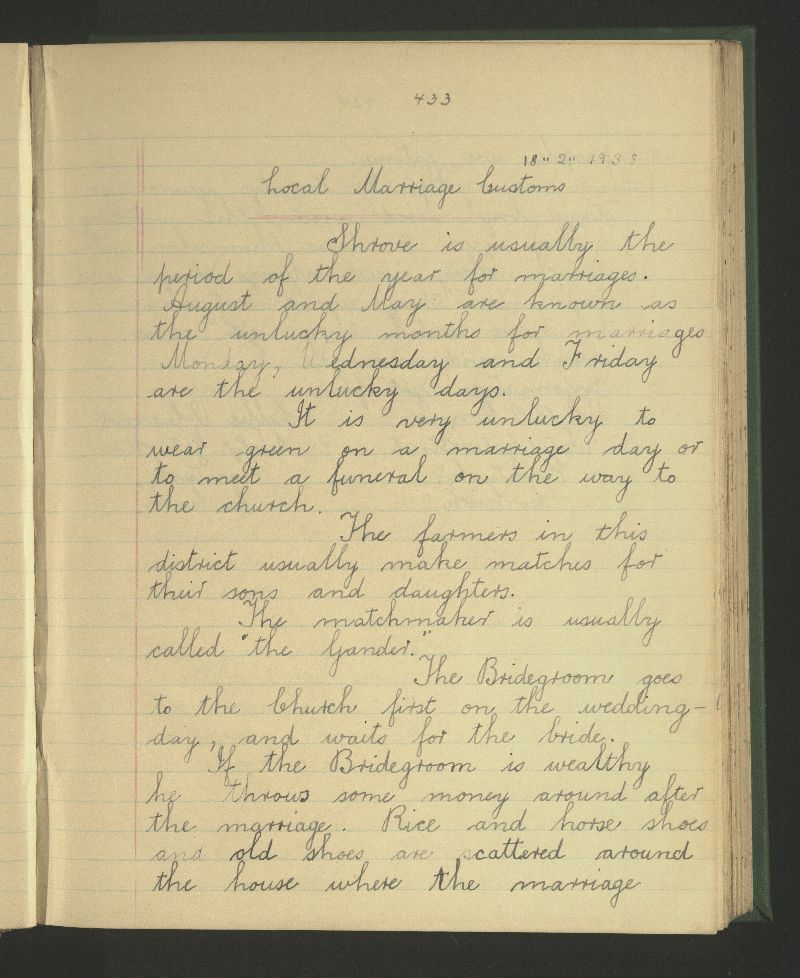 433
18" 2" 1938
Local Marriage Customs
Shrove is usually the
period of the year for marriages.
August and May are known as
the unlucky months for marriages
Monday, Wednesday and Friday
are the unlucky days.
It is very unlucky to
wear green on a marriage day or
to meet a funeral on the way to
the church.
The farmers in this
district usually make matches for
their sons and daughters.
The matchmaker is usually
called "the Gander."
The Bridegroom goes
to the Church first on the wedding-
day, and waits for the bride.
If the Bridegroom is wealthy
he throws some money around after
the marriage. Rice and horse shoes
and old shoes are scattered around
the house where the marriage